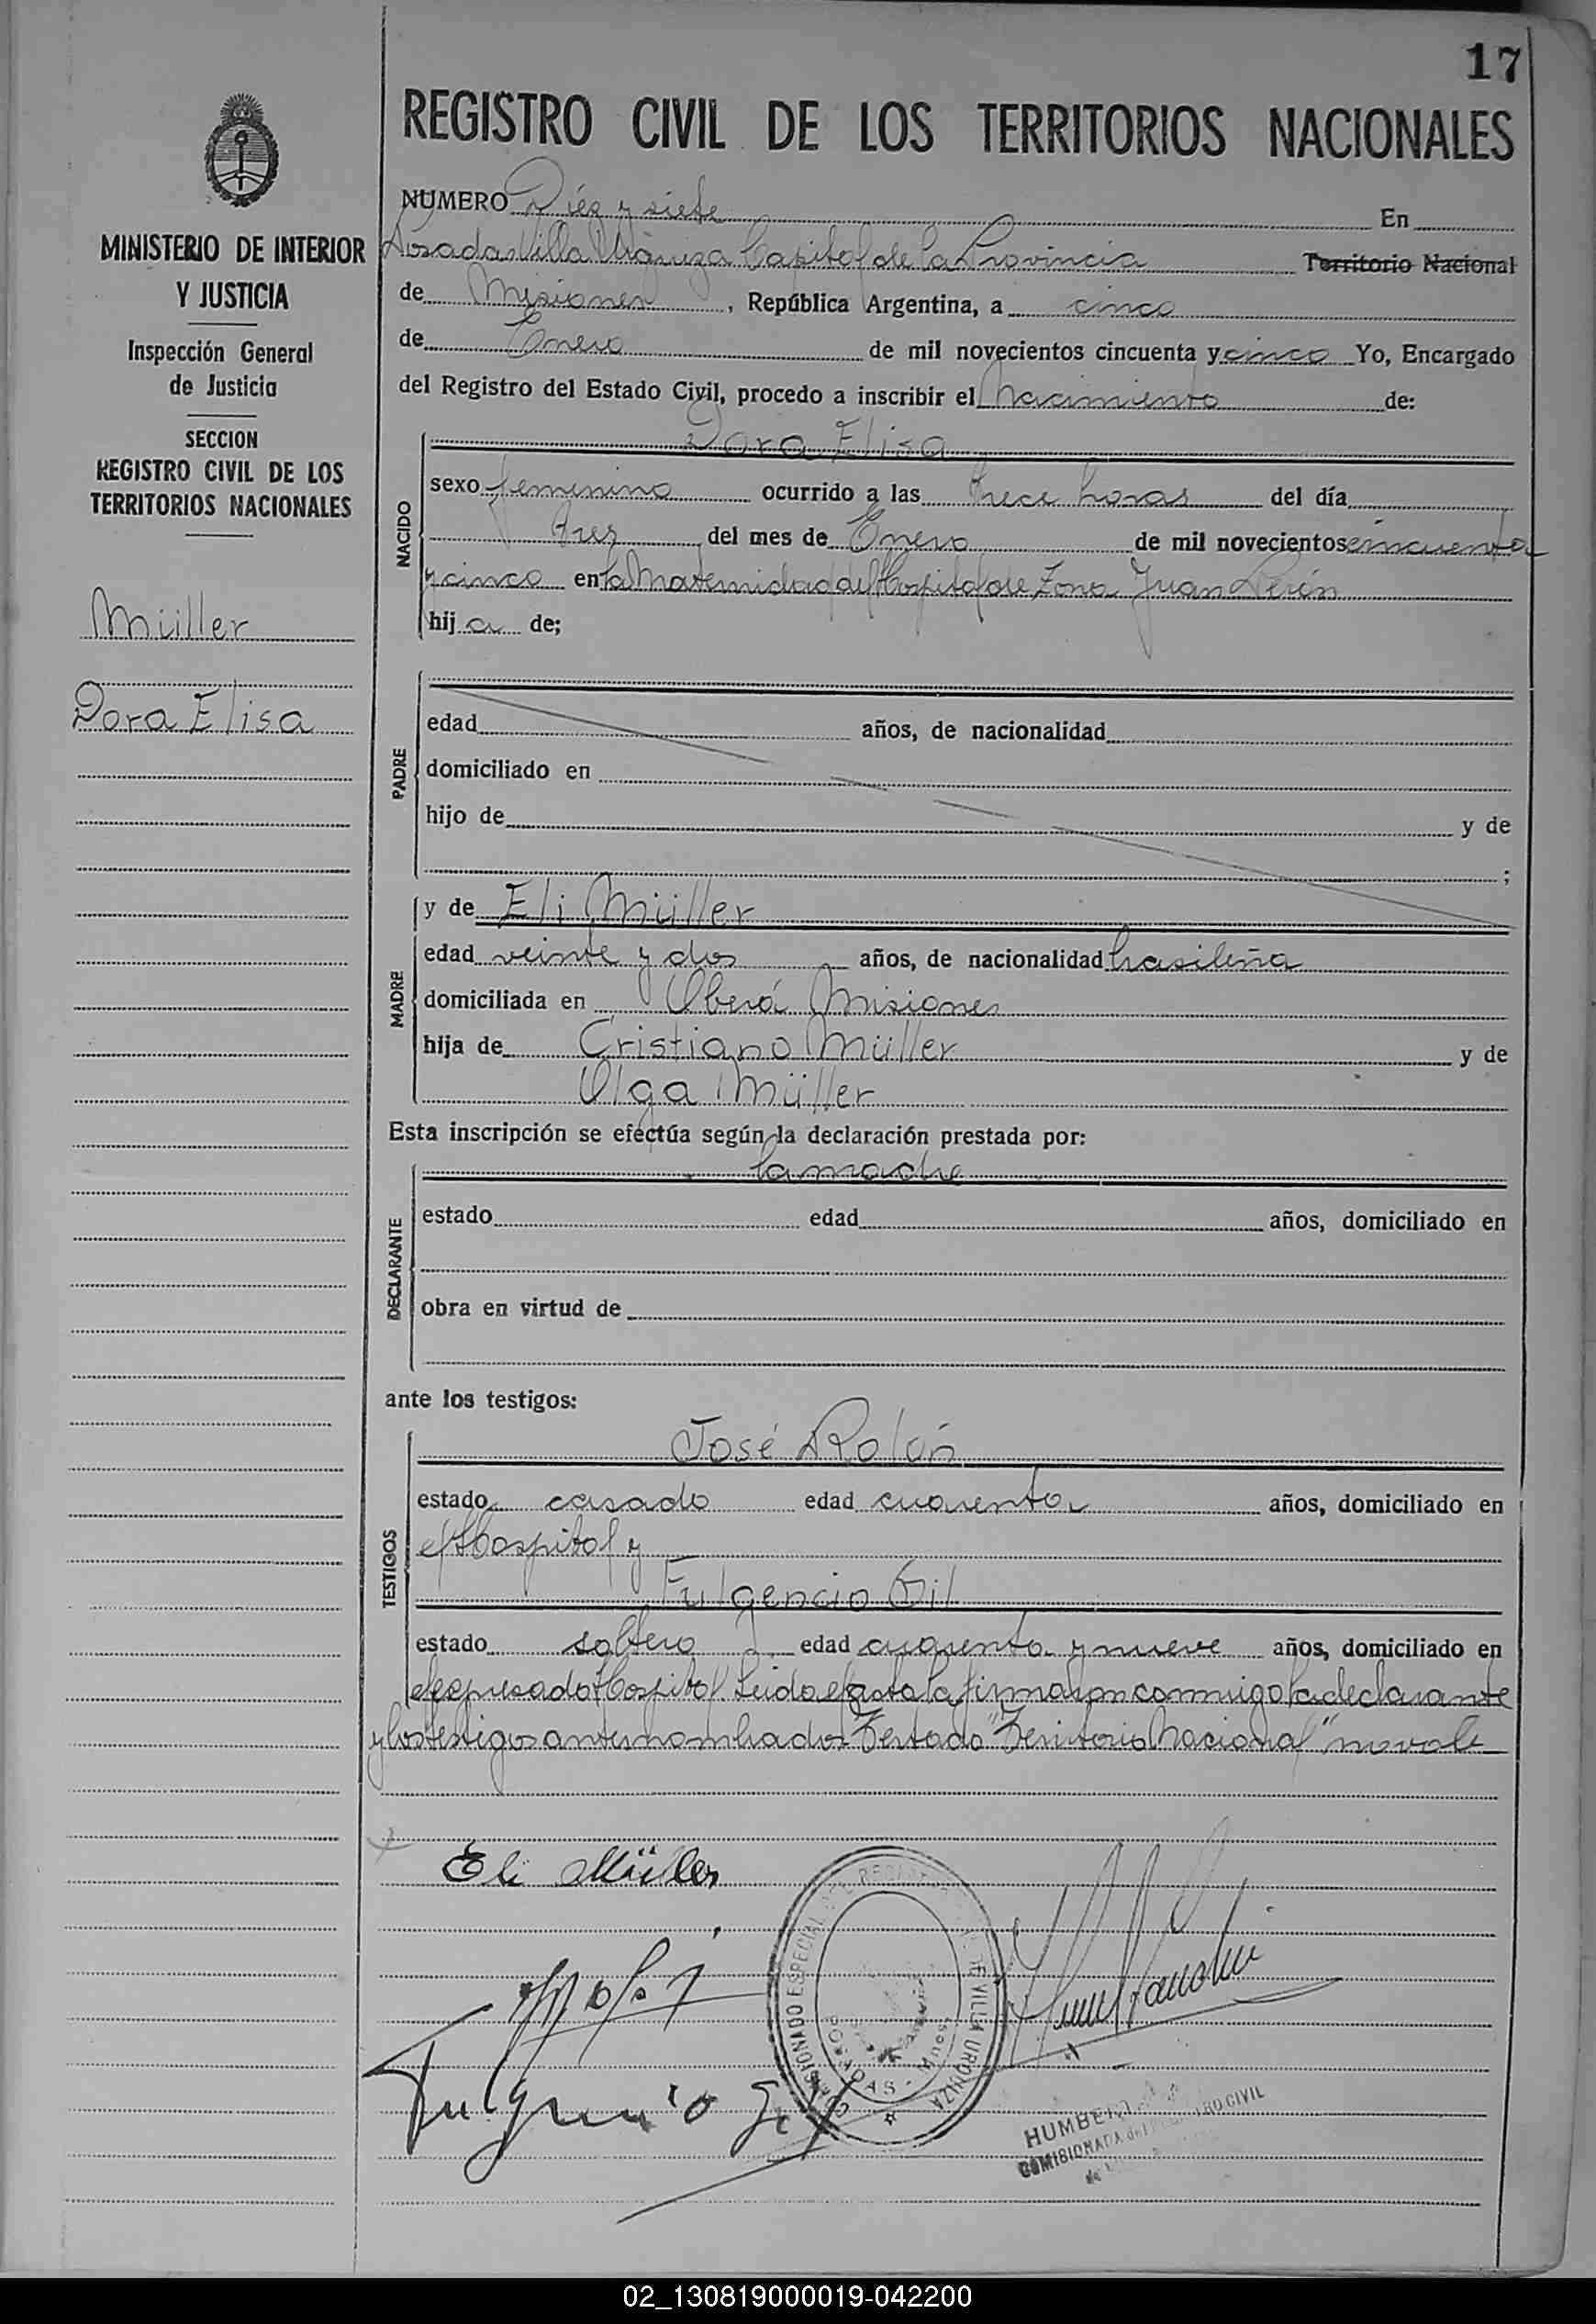 17
REGISTRO CIVIL DE LOS TERRITORIOS NACIONALES
MINISTERIO DE INTERIOR
Y JUSTICIA
Inspección General
de Justicia
SECCION
REGISTRO CIVIL DE LOS
TERRITORIOS NACIONALES
Müller
Dora Elisa
NUMERO Diez y siete En
Posadas Villa Urquiza Capital de la Provincia Territorio Nacional
de Misiones, República Argentina, a cinco
de Enero de mil novecientos cincuenta y cinco Yo, Encargado
del Registro del Estado Civil, procedo a inscribir el Nacimiento de:
Dora Elisa
NACIDO
sexo femenino ocurrido a las trece horas del día
tres del mes de Enero de mil novecientos cincuenta
y cinco en la Maternidad del Hospital de Zona Juan Perón
hija de;
PADRE
edad años, de nacionalidad
domiciliado en
hijo de y de
;
y de Eli Müller
MADRE
edad veinte y dos años, de nacionalidad brasileña
domiciliada en Oberá Misiones
hija de Cristiano Müller y de
Olga Müller
Esta inscripción se efectúa según la declaración prestada por:
la madre
DECLARANTE
estado edad años, domiciliado en
obra en virtud de
ante los testigos:
José Rolón
TESTIGOS
estado casado edad cuarenta años, domiciliado en
el Hospital y
Fulgencio Gil
estado soltero edad cuarenta y nueve años, domiciliado en
el expresado Hospital. Leida el acta la firmaron conmigo la declarante
y los testigos antes nombrados Testado "Territorio Nacional" no vale
Eli Müller
Fulgencio Gil
COMISIONADO ESPECIAL DEL REGISTRO CIVIL DE VILLA URQUIZA
POSADAS - Misiones
HUMBE
COMISIONADA del REGISTRO CIVIL
de
02_130819000019-042200